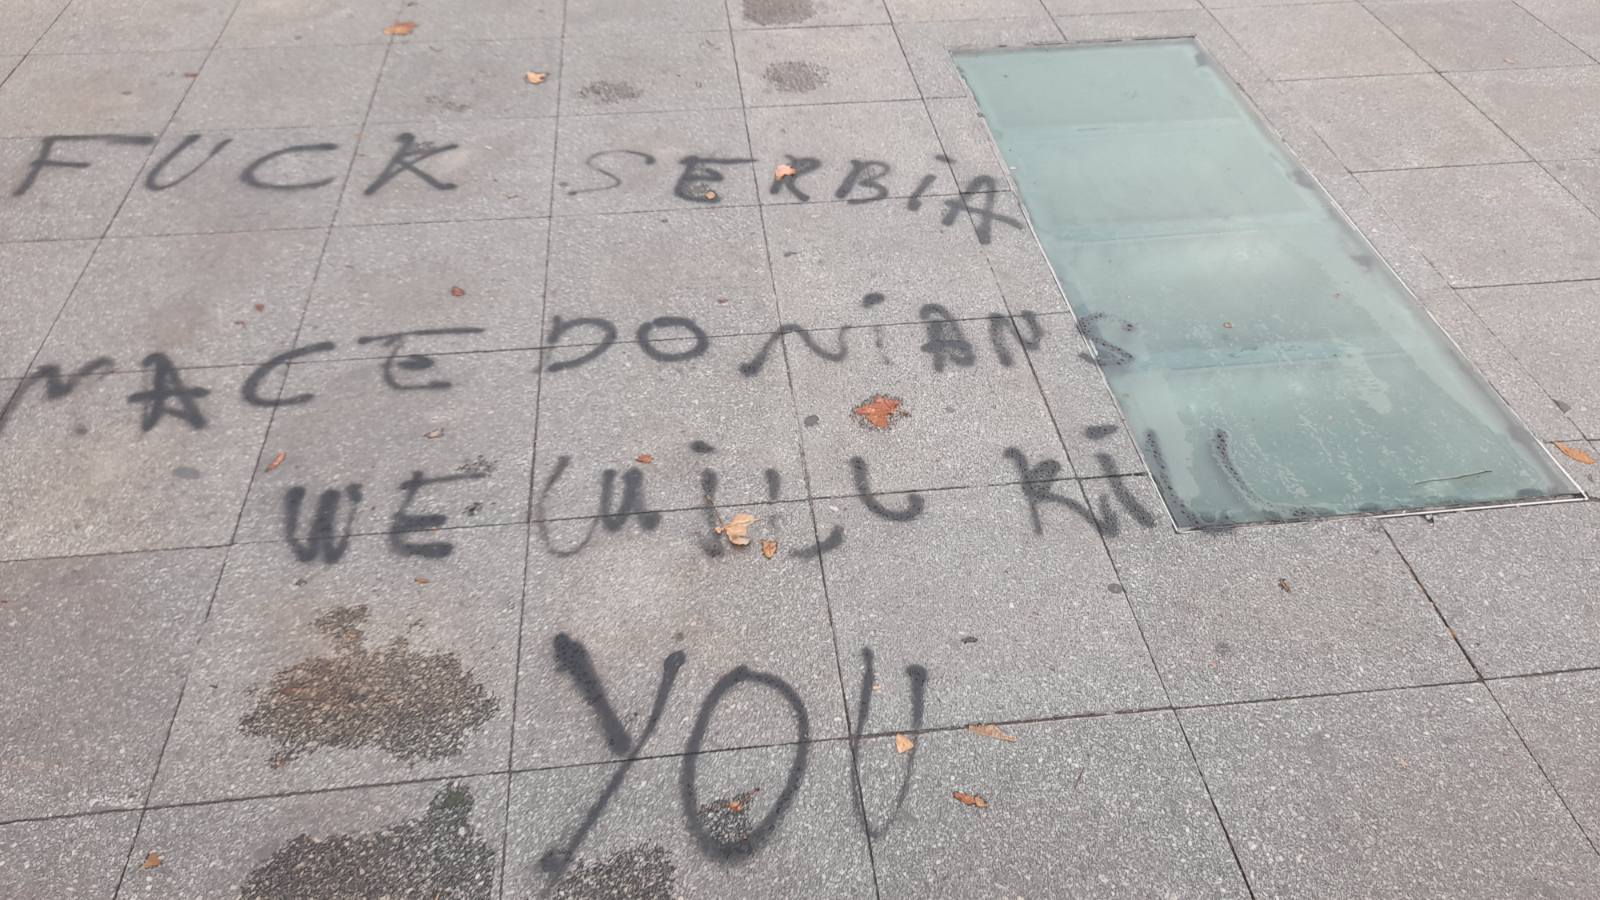 FUCK SERBiA
MACEDONiANS
WE WiLL KiLL
YOU